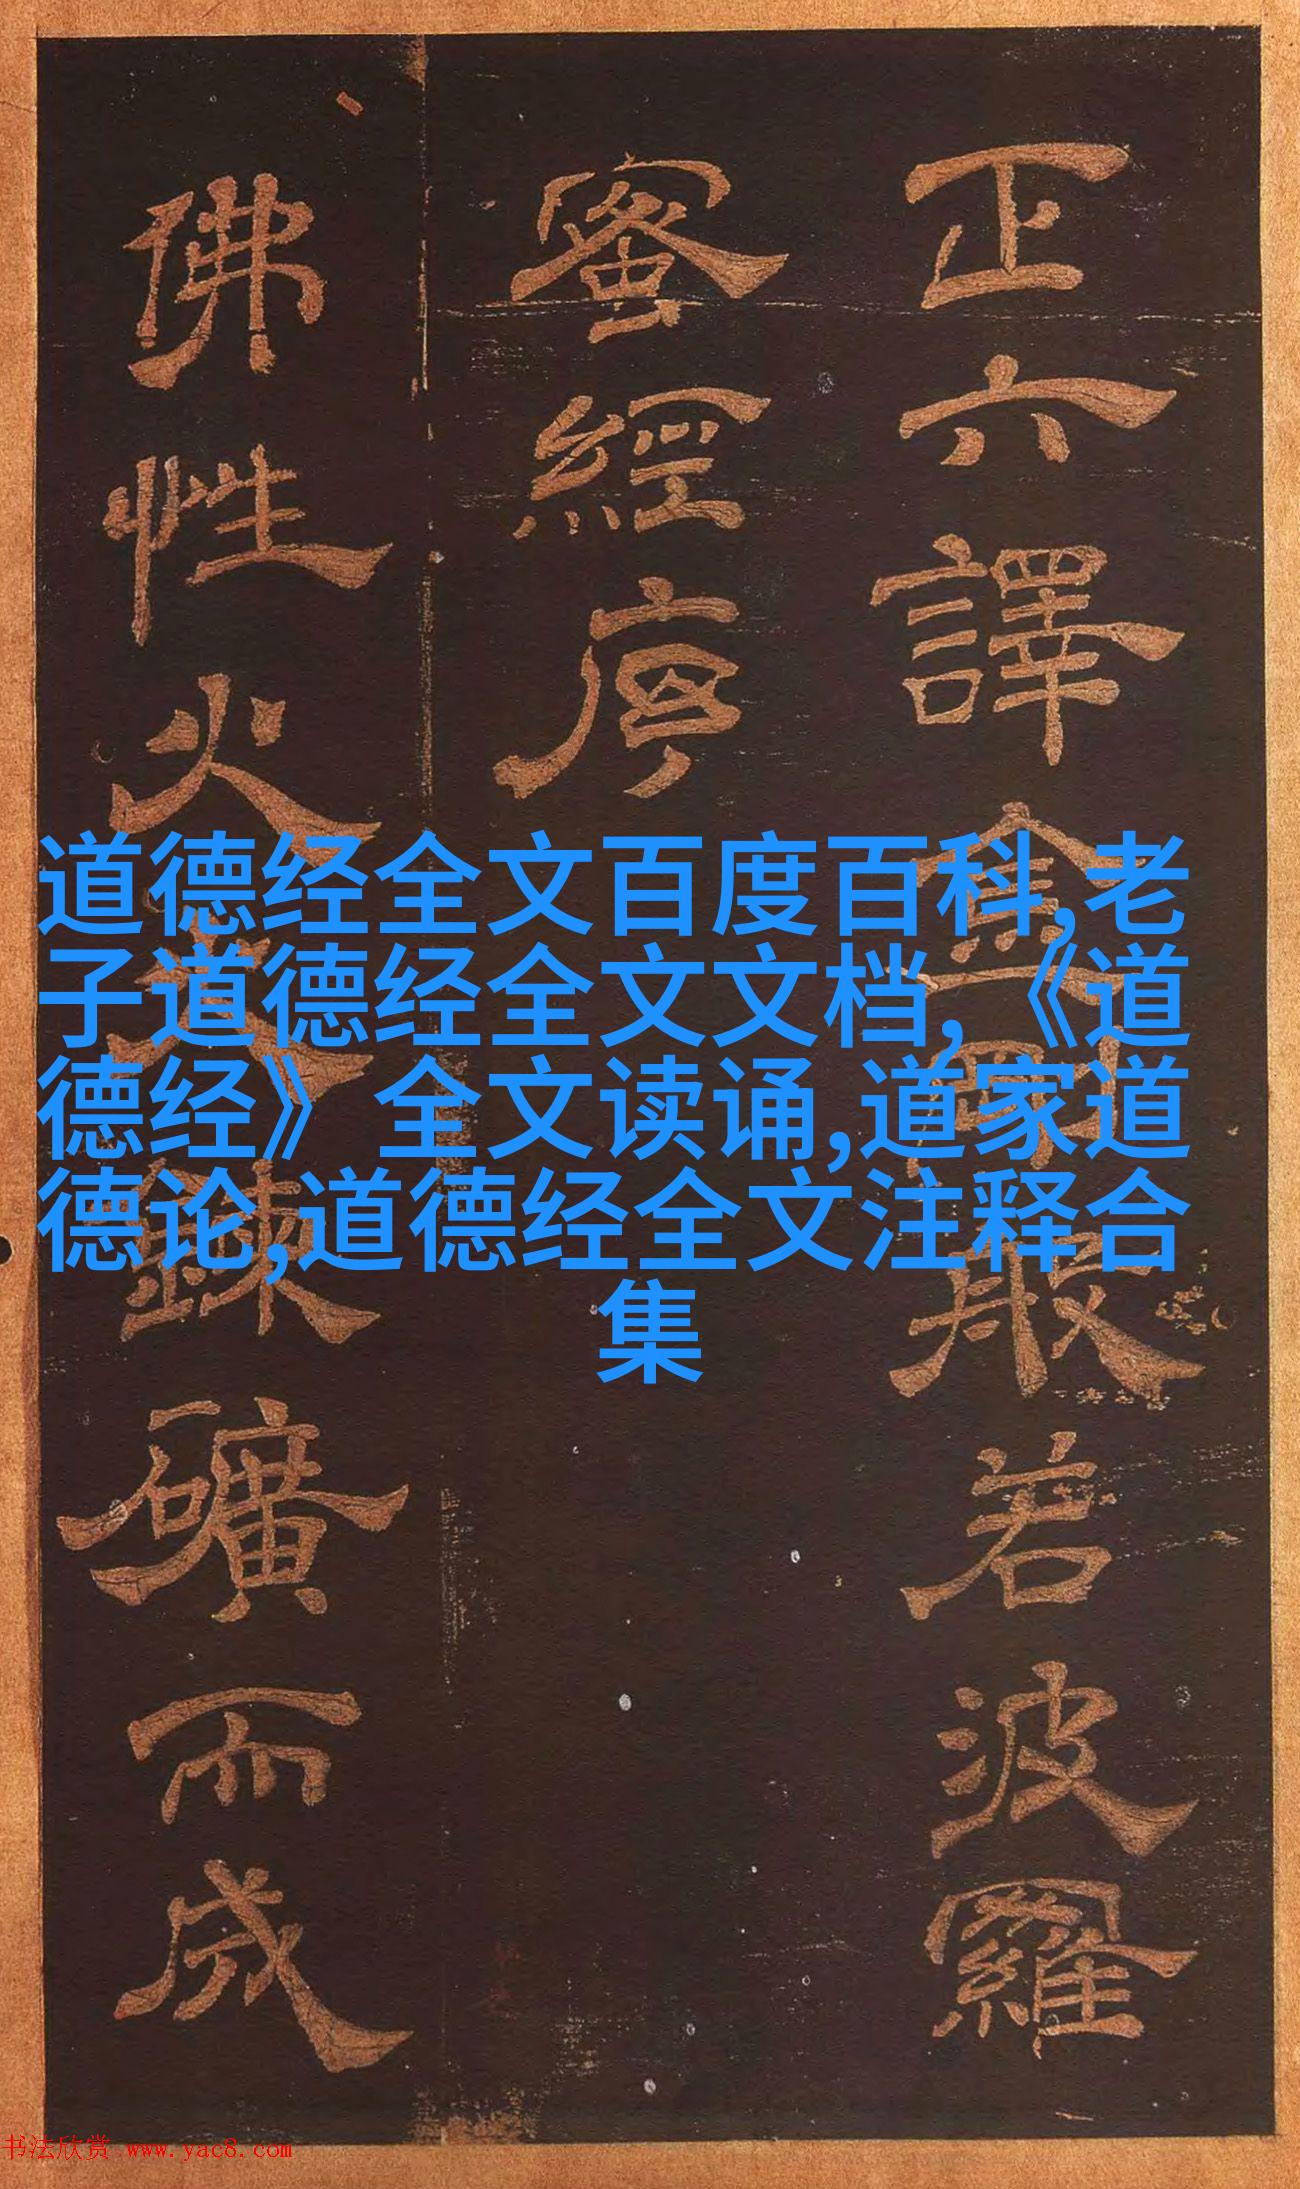 正六譯金剛般若波羅
蜜經序
佛性火𤏲鍊礦而成
道德经全文百度百科,老
子道德经全文文档,《道
德经》全文读诵,道家道
德论,道德经全文注释合
集
书法欣赏 www.yac8.com